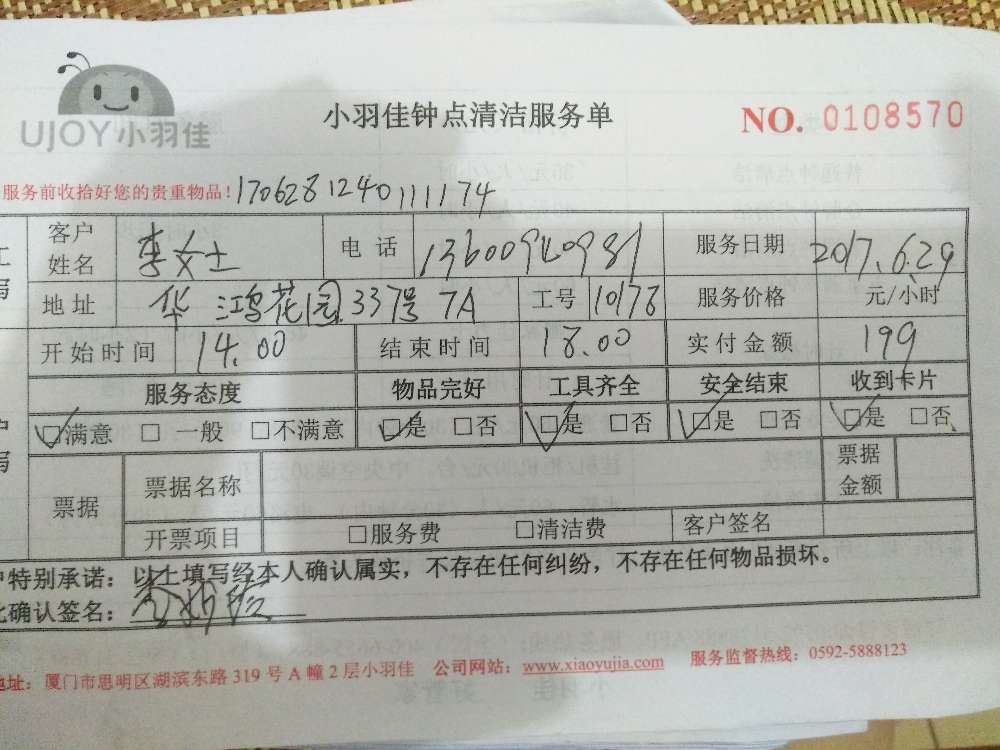 UJOY小羽佳
小羽佳钟点清洁服务单
NO. 0108570
服务前收拾好您的贵重物品! 1706281240111174
客户姓名 李女士 电话 13600940981 服务日期 2017.6.29
地址 华鸿花园337号7A 工号 10178 服务价格 元/小时
开始时间 14.00 结束时间 18.00 实付金额 199
服务态度 物品完好 工具齐全 安全结束 收到卡片
☑满意 □一般 □不满意 ☑是 □否 ☑是 □否 ☑是 □否 ☑是 □否
票据 票据名称 票据金额
开票项目 □服务费 □清洁费 客户签名
户特别承诺：以上填写经本人确认属实，不存在任何纠纷，不存在任何物品损坏。
此确认签名：
地址：厦门市思明区湖滨东路319号A幢2层小羽佳 公司网站：www.xiaoyujia.com 服务监督热线：0592-5888123